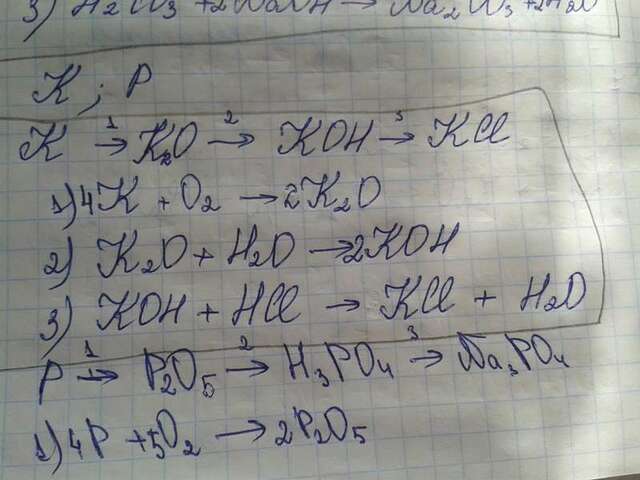 3) H₂CO₃ + 2NaOH → Na₂CO₃ + 2H₂O
K ; P
K →¹ K₂O →² KOH →³ KCl
1) 4K + O₂ → 2K₂O
2) K₂O + H₂O → 2KOH
3) KOH + HCl → KCl + H₂O
P →¹ P₂O₅ →² H₃PO₄ →³ Na₃PO₄
1) 4P + 5O₂ → 2P₂O₅